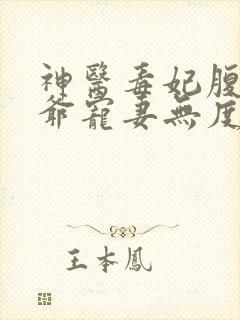 神醫毒妃腹
爺寵妻無度
王本鳳